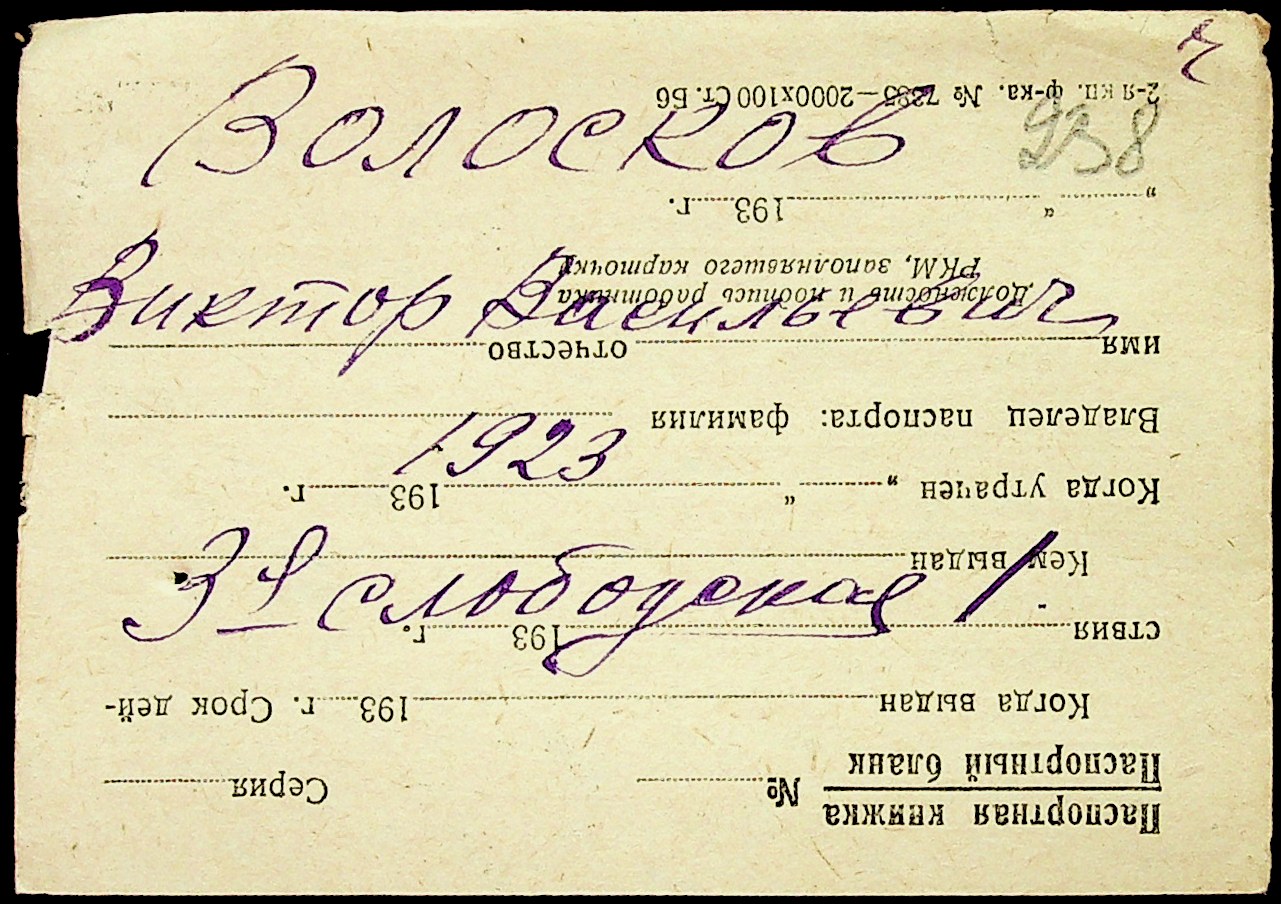 Волосков
938
Виктор Васильевич
1923
3я слободская 1
Паспортная книжка
Паспортный бланк
№ Серия
Когда выдан 193 г. Срок дей-
ствия 193 г.
Кем выдан
Когда утрачен „ “ 193 г.
Владелец паспорта: фамилия
имя отчество
Должность и подпись работника
РКМ, заполнявшего карточку
„ “ 193 г.
2-я кн. ф-ка. № —2000х100 Ст. Б6